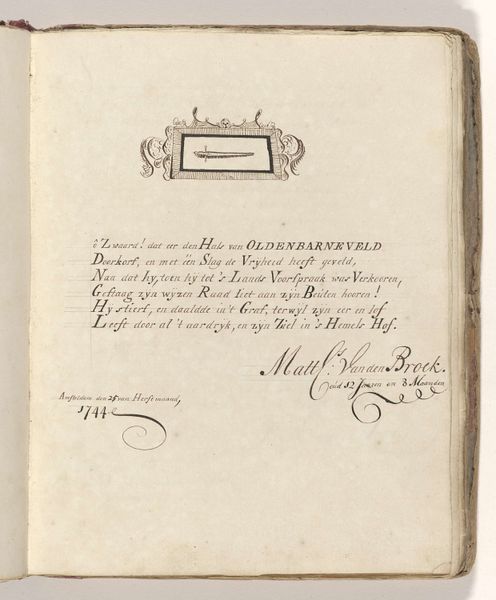 ô Zwaard! dat eer den Hals van OLDENBARNEVELD
Doorkorf, en met één Slag de Vryheid heeft geveld,
Nan dat hy, toen hy tot 's Lands Voorspraak was Verkooren,
Gestaag zyn wyzen Raad liet aan zyn Beulen hooren!
Hy stierf, en daaldde in 't Graf, terwyl zyn eer en lof
Leeft door al 't aardryk, en zyn Ziel in 's Hemels Hof.
Matt.s: Van den Broek.
oud 12 Jaaren en 8 Maanden
Amsteldam den 25 van Herfstmaand,
1744